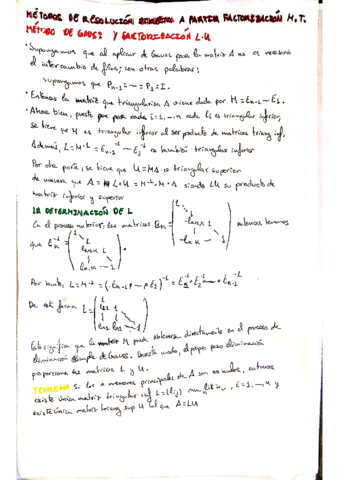 MÉTODOS DE RESOLUCIÓN DIRECTA A PARTIR FACTORIZACIÓN M.T.
MÉTODO DE GAUSS Y FACTORIZACIÓN L·U
· Supongamos que al aplicar de Gauss para la matriz A no es necesario
el intercambio de filas; con otras palabras:
supongamos que Pn-1 = ... = P1 = I.
· Entonces la matriz que triangulariza A viene dada por M = En-1 ... E1.
· Ahora bien, puesto que para cada i=1,...,n cada Ei es triangular inferior,
se tiene que M es triangular inferior al ser producto de matrices triang. inf.
Además, L = M⁻¹ = E1⁻¹ ... En-1⁻¹ es también triangular inferior
Por otra parte, se tiene que U = MA es triangular superior
de manera que A = L·U = M⁻¹·M·A siendo LU su producto de
matriz inferior y superior
LA DETERMINACIÓN DE L
En el proceso anterior, las matrices Ek = (1 -lk+1,k 1 -ln,k ... 1) entonces tenemos
que Ek⁻¹ = (1 1 lk+1,k 1 ln,k ... 1).
Por tanto, L = M⁻¹ = (En-1 ... E1)⁻¹ = E1⁻¹ · E2⁻¹ ... En-1⁻¹
De esta forma L = (1 l21 1 ln1 ln2 ... 1)
Esto significa que la matriz M puede obtenerse directamente en el proceso de
eliminación simple de Gauss. De este modo, el propio paso eliminación
proporciona las matrices L y U.
TEOREMA Si los n menores principales de A son no nulos, entonces
existe única matriz triangular inf L = (lij) con lii = 1, i=1,...,n y
existe única matriz triang sup U tal que A = LU